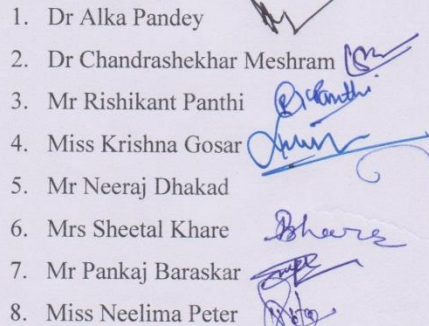 1. Dr Alka Pandey
2. Dr Chandrashekhar Meshram
3. Mr Rishikant Panthi
4. Miss Krishna Gosar
5. Mr Neeraj Dhakad
6. Mrs Sheetal Khare
7. Mr Pankaj Baraskar
8. Miss Neelima Peter